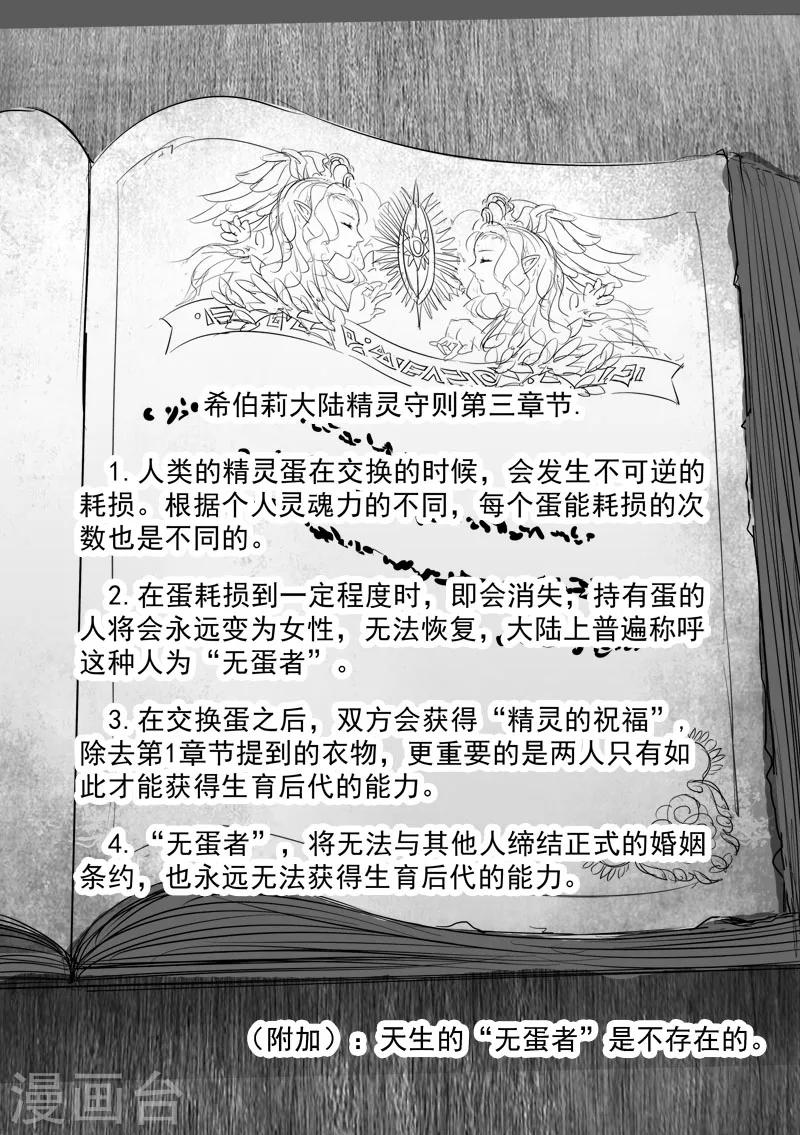 希伯莉大陆精灵守则第三章节.
1.人类的精灵蛋在交换的时候，会发生不可逆的
耗损。根据个人灵魂力的不同，每个蛋能耗损的次
数也是不同的。
2.在蛋耗损到一定程度时，即会消失，持有蛋的
人将会永远变为女性，无法恢复，大陆上普遍称呼
这种人为“无蛋者”。
3.在交换蛋之后，双方会获得“精灵的祝福”，
除去第1章节提到的衣物，更重要的是两人只有如
此才能获得生育后代的能力。
4.“无蛋者”，将无法与其他人缔结正式的婚姻
条约，也永远无法获得生育后代的能力。
（附加）：天生的“无蛋者”是不存在的。
漫画台